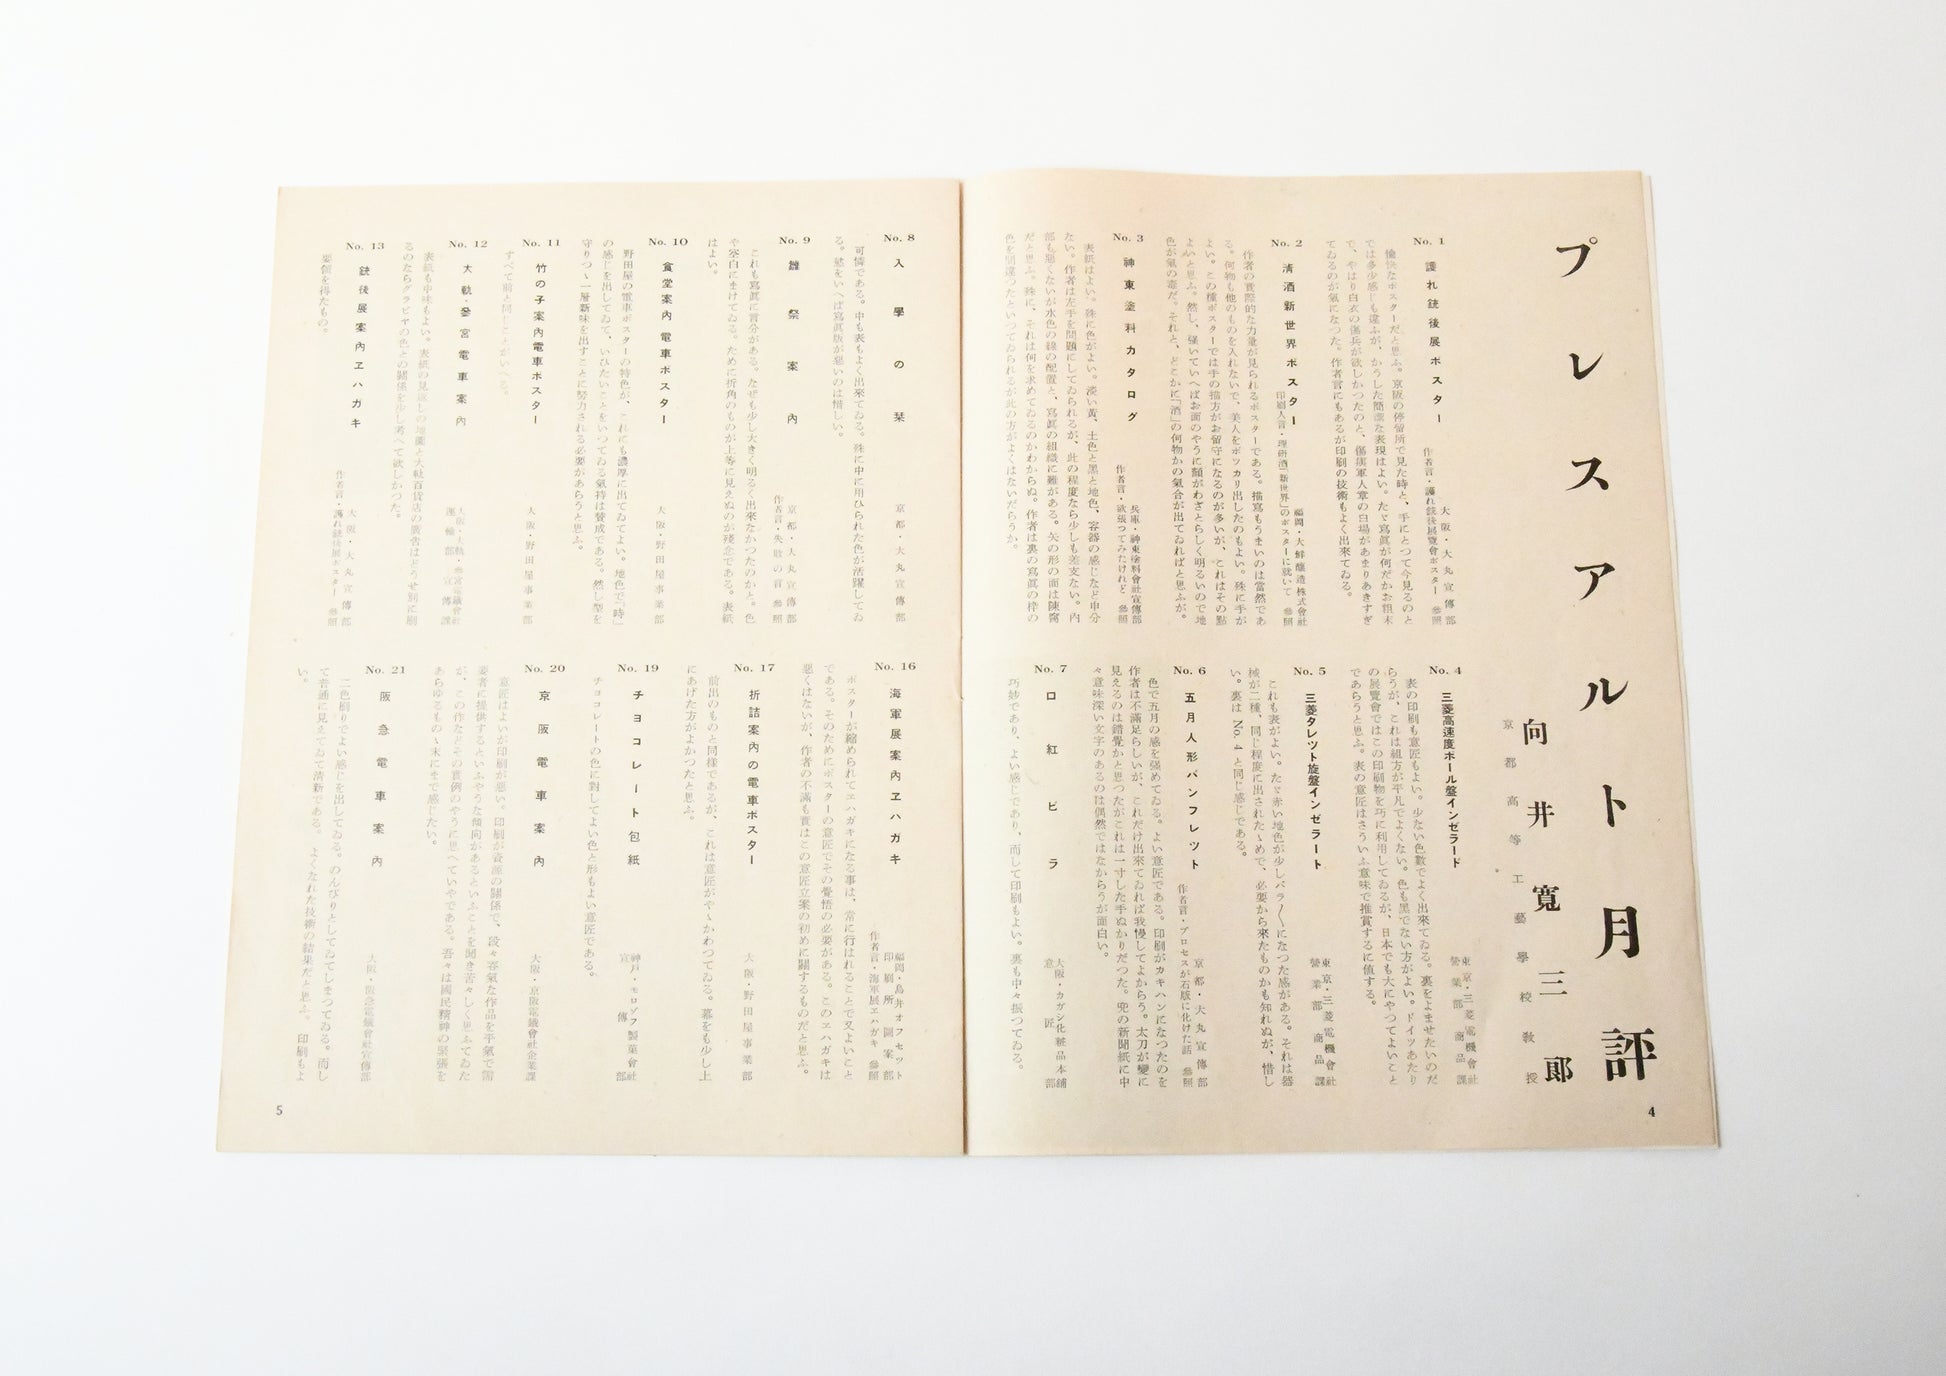 プレスアルト月評
向井寬三郎
京都高等工藝學校教授
No. 1
護れ銃後展ポスター
大阪・大丸宣傳部
作者言・護れ銃後展覽會ポスター 參照
愉快なポスターだと思ふ。京阪の停留所で見た時と、手にとつて今見るのと
では多少感じも違ふが、かうした簡潔な表現はよい。たゞ寫眞が何だかお粗末
で、やはり白衣の傷兵が欲しかつたのと、傷痍軍人章の白場があまりあきすぎ
てゐるのが氣になつた。作者言にもあるが印刷の技術もよく出來てゐる。
No. 2
清酒新世界ポスター
福岡・大鮮釀造株式會社
印刷人言・理硏酒「新世界」のポスターに就いて 參照
作者の實際的な力量が見られるポスターである。描寫もうまいのは當然であ
る。何物も他のものを入れないで、美人をポツカリ出したのもよい。殊に手が
よい。この種ポスターでは手の描方がお留守になるのが多いが、これはその點
よいと思ふ。然し、强いていへばお面のやうに顏がわざとらしく明るいので地
色が氣の毒だ。それと、どこかに「酒」の何物かの氣合が出てゐればと思ふが。
No. 3
神東塗料カタログ
兵庫・神東塗料會社宣傳部
作者言・欲張つてみたけれど 參照
表紙はよい。殊に色がよい。淡い黃、土色と黑と地色、容器の感じなど申分
ない。作者は左手を問題にしてゐられるが、此の程度なら少しも差支ない。內
部も惡くないが水色の線の配置と、寫眞の組織に難がある。矢の形の面は陳腐
だと思ふ。殊に、それは何を求めてゐるのかわからぬ。作者は裏の寫眞の枠の
色を間違つたといつてゐられるが此の方がよくはないだらうか。
No. 4
三菱高速度ボール盤インゼラード
東京・三菱電機會社
營業部 商品課
表の印刷も意匠もよい。少ない色數でよく出來てゐる。裏をよませたいのだ
らうが、これは組方が平凡でよくない。色も黑でない方がよい。ドイツあたり
の展覽會ではこの印刷物を巧に利用してゐるが、日本でも大にやつてよいこと
であらうと思ふ。表の意匠はさういふ意味で推賞するに値する。
No. 5
三菱タレツト旋盤インゼラート
東京・三菱電機會社
營業部 商品課
これも表がよい。たゞ赤い地色が少しバラ〳〵になつた感がある。それは器
械が二種、同じ程度に出されたゝめで、必要から來たものかも知れぬが、惜し
い。裏は No. 4 と同じ感じである。
No. 6
五月人形パンフレツト
京都・大丸宣傳部
作者言・プロセスが石版に化けた話 參照
色で五月の感を强めてゐる。よい意匠である。印刷がカキハンになつたのを
作者は不滿足らしいが、これだけ出來てゐれば我慢してよからう。太刀が變に
見えるのは錯覺かと思つたがこれは一寸した手ぬかりだつた。兜の新聞紙に中
々意味深い文字のあるのは偶然ではなからうが面白い。
No. 7
口紅ビラ
大阪・カガシ化粧品本舖
意匠部
巧妙であり、よい感じであり、而して印刷もよい。裏も中々振つてゐる。
4
No. 8
入學の栞
京都・大丸宣傳部
可憐である。中も表もよく出來てゐる。殊に中に用ひられた色が活躍してゐ
る。慾をいへば寫眞版が惡いのは惜しい。
No. 9
雛祭案內
京都・大丸宣傳部
作者言・失敗の首 參照
これも寫眞に言分がある。なぜも少し大きく明るく出來なかつたのかと。色
や空白にまけてゐる。ために折角のものが上等に見えぬのが殘念である。表紙
はよい。
No. 10
食堂案內電車ポスター
大阪・野田屋事業部
野田屋の電車ポスターの特色が、これにも濃厚に出てゐてよい。地色で「時」
の感じを出してゐて、いひたいことをいつてゐる氣持は賛成である。然し型を
守りつゝ一層新味を出すことに努力される必要があらうと思ふ。
No. 11
竹の子案內電車ポスター
大阪・野田屋事業部
すべて前と同じことがいへる。
No. 12
大軌・參宮電車案內
大阪・大軌・參宮電鐵會社
運輸部 宣傳課
表紙も中味もよい。表紙の見返しの地圖と大軌百貨店の廣告はどうせ別に刷
るのならグラビヤの色との關係を少し考へて欲しかつた。
No. 13
銃後展案內ヱハガキ
大阪・大丸宣傳部
作者言・護れ銃後展ポスター 參照
要領を得たもの。
No. 16
海軍展案內ヱハガキ
福岡・島井オフセツト
印刷所 圖案部
作者言・海軍展ヱハガキ 參照
ポスターが縮められてヱハガキになる事は、常に行はれることで又よいこと
である。そのためにポスターの意匠でその覺悟の必要がある。このヱハガキは
惡くはないが、作者の不滿も實はこの意匠立案の初めに關するものだと思ふ。
No. 17
折詰案內の電車ポスター
大阪・野田屋事業部
前出のものと同樣であるが、これは意匠がやゝかわつてゐる。幕をも少し上
にあげた方がよかつたと思ふ。
No. 19
チョコレート包紙
神戶・モロゾフ製菓會社
宣傳部
チョコレートの色に對してよい色と形もよい意匠である。
No. 20
京阪電車案內
大阪・京阪電鐵會社企業課
意匠はよいが印刷が惡い。印刷が資源の關係で、段々吞氣な作品を平氣で需
要者に提供するといふやうな傾向があるといふことを聞き苦々しく思ふてゐた
が、この作などその實例のやうに思へていやである。吾々は國民精神の緊張を
あらゆるものゝ末にまで感じたい。
No. 21
阪急電車案內
大阪・阪急電鐵會社宣傳部
二色刷りでよい感じを出してゐる。のんびりとしてゐてしまつてゐる。而し
て普通に見えてゐて淸新である。よくなれた技術の結果だと思ふ。印刷もよ
い。
5